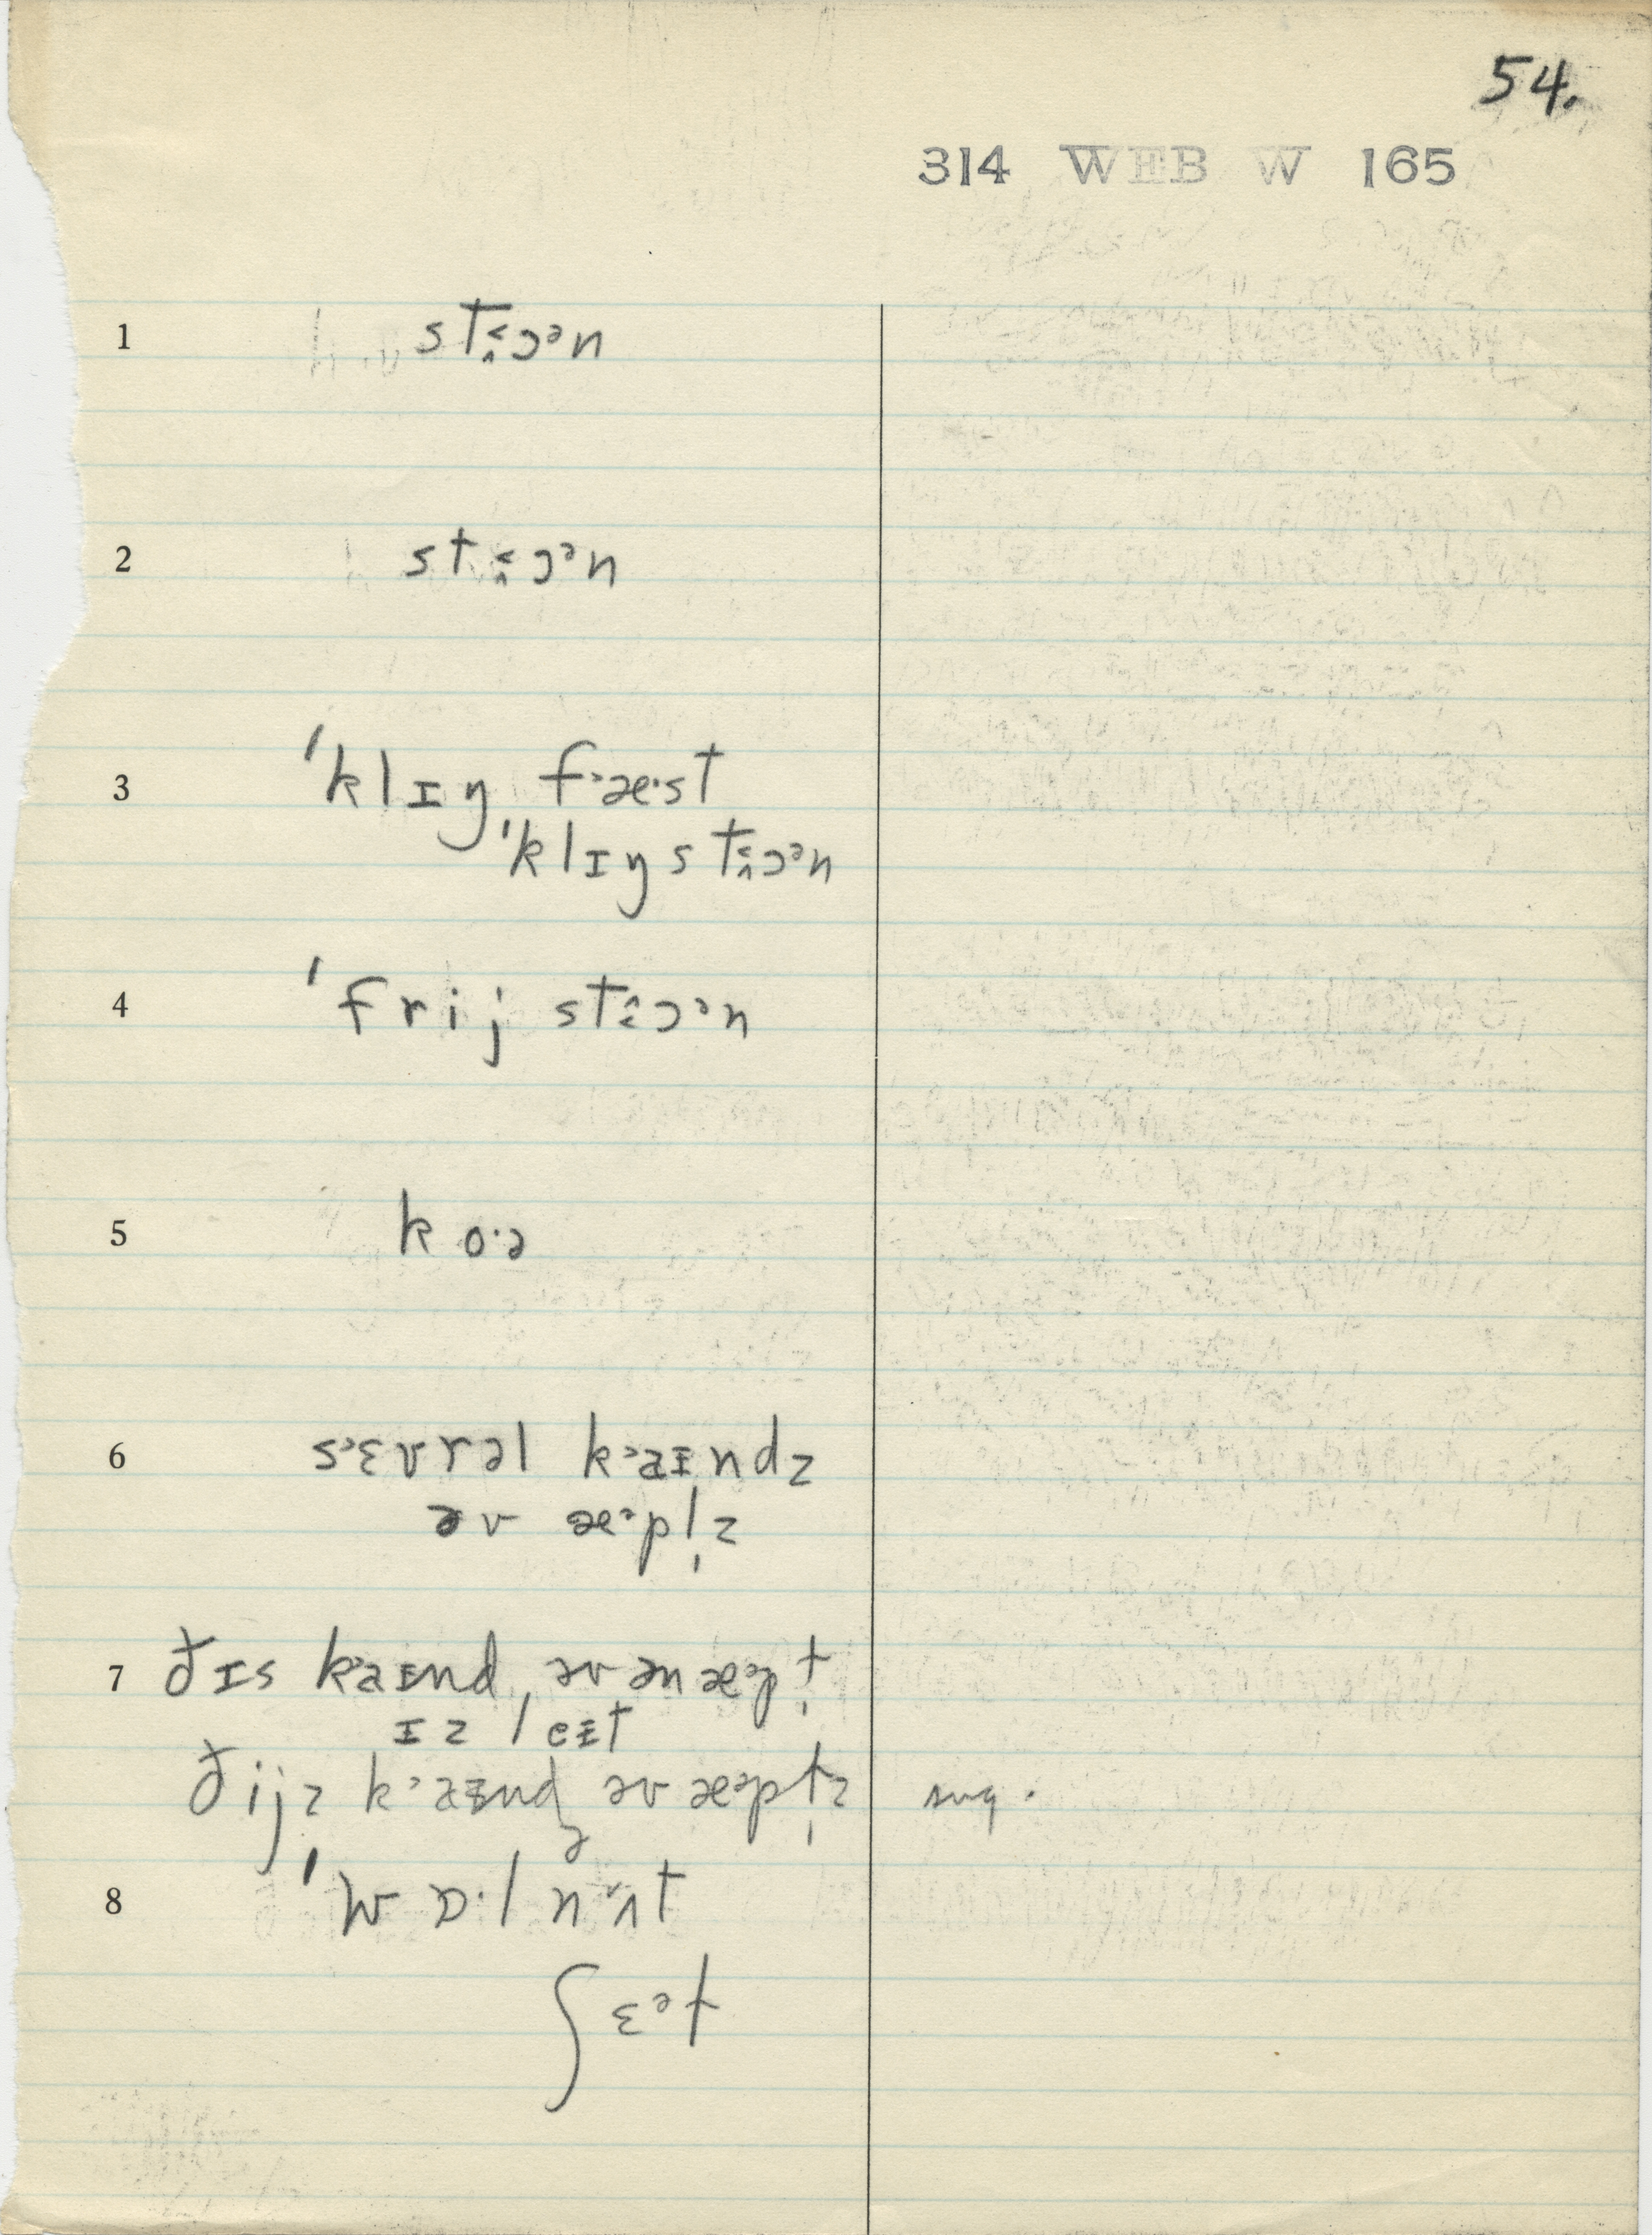 54.
314 WEB W 165
1 stɔᵊn
2 stɔᵊn
3 ˈklɪŋ fᵊæ·st
ˈklɪŋ stɔᵊn
4 ˈfrij stɔᵊn
5 ko·ə
6 sᵊɛvrəl kᵊaɪndz
əv æᵊpl̩z
7 ðɪs kᵊaɪnd əv ən æᵊpl̩
ɪz leɪt
ðijz kᵊaɪnd əv æᵊpl̩z sug.
8 ˈwɒ·l nʌt
ʃɛᵊl